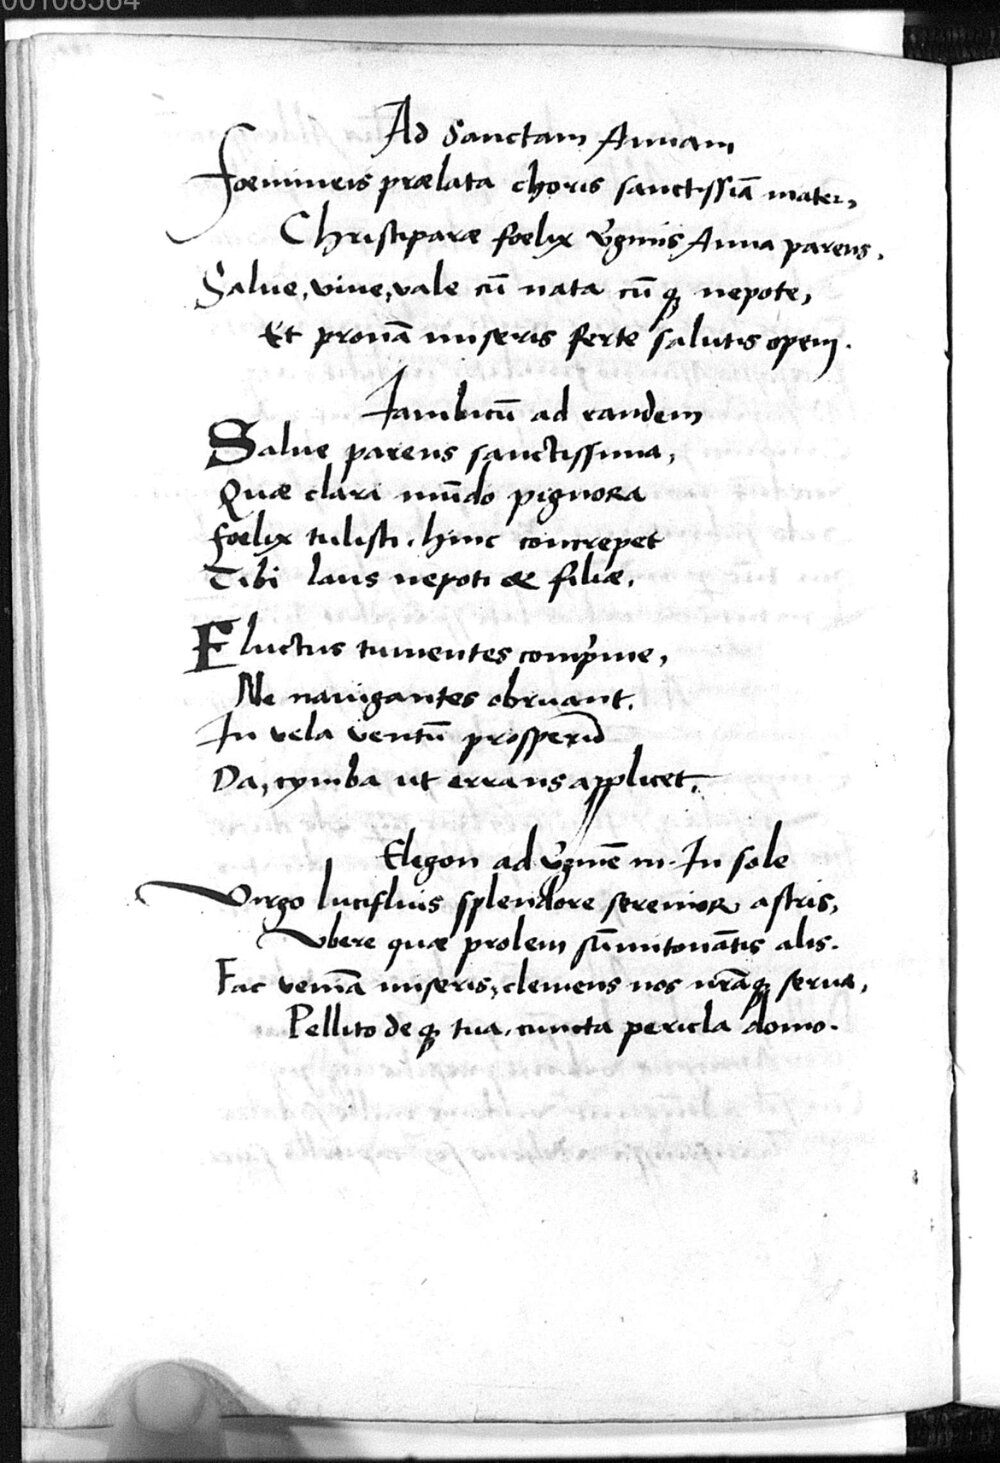 00108564
Ad Sanctam Annam
Foemineis prælata choris sanctissiā mater,
Christiparæ foelix v̓ginis Anna parens.
Salue, viue, vale cū nata cū qȝ nepote,
Et pronā miseris ferte salutis opem.
Iambicū ad eandem
Salue parens sanctissima,
Quæ clara mūdo pignora
foelix tulisti. hinc concrepet
Tibi laus nepoti & filiæ.
Fluctus tumentes comp̓me,
Ne nauigantes obruant.
In vela ventū prosperū
Da, cymba ut errans applicet.
Elegon ad v̓ginē m. In sole
Virgo lucifluis splendore serenior astris,
Vbere quæ prolem sūmitonātis alis.
Fac veniā miseris, clemens nos nrāqȝ serua,
Pellito de qȝ tua cuncta pericla domo.